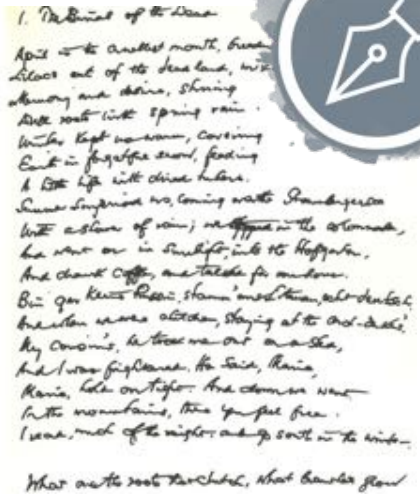 1. The Burial of the Dead
April is the cruellest month, breed
Lilacs out of the dead land, mix
Memory and desire, stirring
Dull roots with spring rain.
Winter kept us warm, covering
Earth in forgetful snow, feeding
A little life with dried tubers.
Summer surprised us, coming over the Starnbergersee
With a shower of rain; we stopped in the colonnade,
And went on in sunlight, into the Hofgarten,
And drank coffee, and talked for an hour.
Bin gar keine Russin, stamm' aus Litauen, echt deutsch.
And when we were children, staying at the arch-duke's,
My cousin's, he took me out on a sled,
And I was frightened. He said, Marie,
Marie, hold on tight. And down we went.
In the mountains, there you feel free.
I read, much of the night, and go south in the winter.
What are the roots that clutch, what branches grow